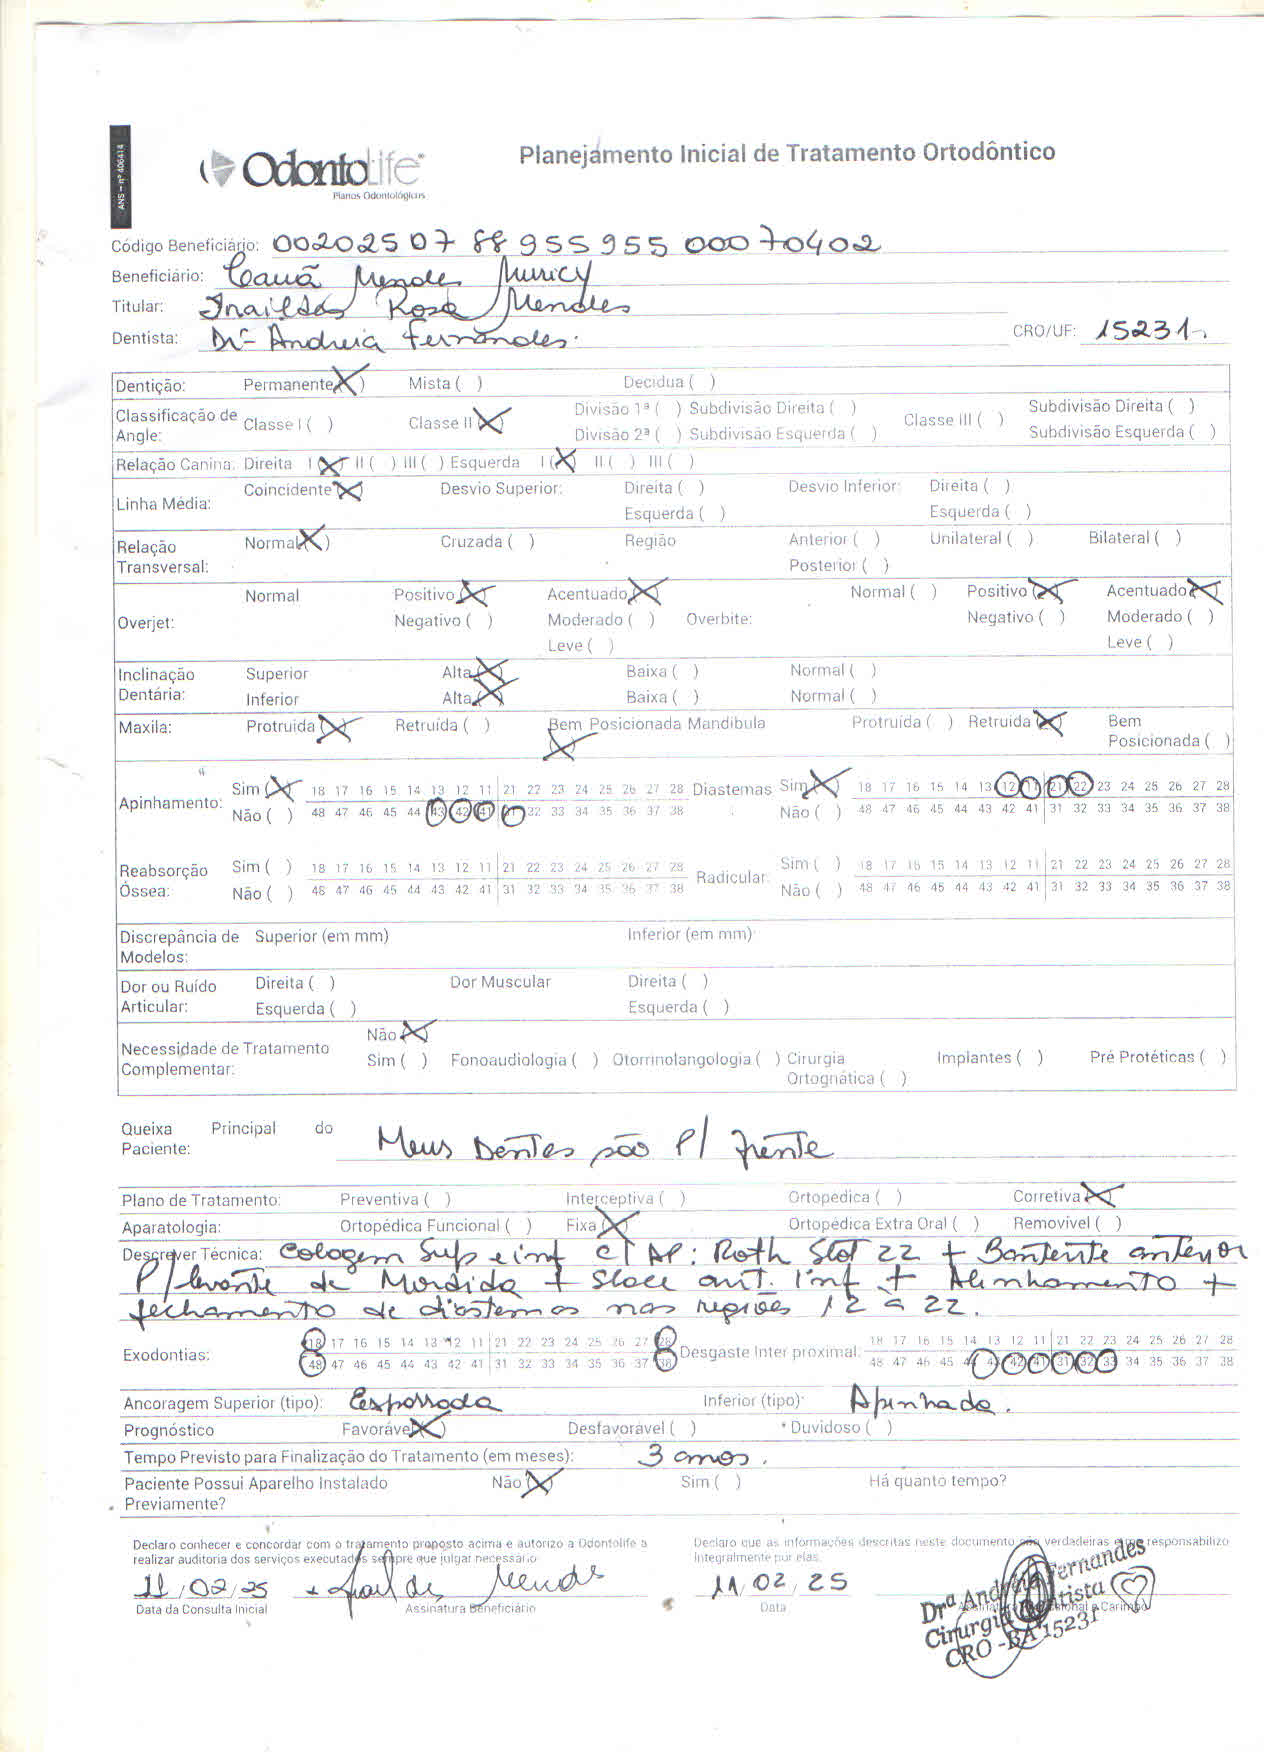 ANS – nº 406414
OdontoLife®
Planos Odontológicos
Planejamento Inicial de Tratamento Ortodôntico
Código Beneficiário: 00202507 88 955 955 000 70402
Beneficiário: Cauã Mendes Muricy
Titular: Inaildes Rosa Mendes
Dentista: Drª Andreia Fernandes. CRO/UF: 15231.
Dentição: Permanente (X) Mista ( ) Decídua ( )
Classificação de Angle: Classe I ( ) Classe II (X) Divisão 1ª ( ) Subdivisão Direita ( ) Classe III ( ) Subdivisão Direita ( )
Divisão 2ª ( ) Subdivisão Esquerda ( ) Subdivisão Esquerda ( )
Relação Canina: Direita I (X) II ( ) III ( ) Esquerda I (X) II ( ) III ( )
Linha Média: Coincidente (X) Desvio Superior: Direita ( ) Desvio Inferior: Direita ( )
Esquerda ( ) Esquerda ( )
Relação Transversal: Normal (X) Cruzada ( ) Região Anterior ( ) Unilateral ( ) Bilateral ( )
Posterior ( )
Overjet: Normal Positivo (X) Acentuado (X) Overbite: Normal ( ) Positivo (X) Acentuado (X)
Negativo ( ) Moderado ( ) Negativo ( ) Moderado ( )
Leve ( ) Leve ( )
Inclinação Dentária: Superior Alta (X) Baixa ( ) Normal ( )
Inferior Alta (X) Baixa ( ) Normal ( )
Maxila: Protruida (X) Retruída ( ) Bem Posicionada (X) Mandibula Protruída ( ) Retruida (X) Bem Posicionada ( )
Apinhamento: Sim (X) 18 17 16 15 14 13 12 11 21 22 23 24 25 26 27 28 Diastemas Sim (X) 18 17 16 15 14 13 12 11 21 22 23 24 25 26 27 28
Não ( ) 48 47 46 45 44 43 42 41 31 32 33 34 35 36 37 38 Não ( ) 48 47 46 45 44 43 42 41 31 32 33 34 35 36 37 38
Reabsorção Óssea: Sim ( ) 18 17 16 15 14 13 12 11 21 22 23 24 25 26 27 28 Radicular: Sim ( ) 18 17 16 15 14 13 12 11 21 22 23 24 25 26 27 28
Não ( ) 48 47 46 45 44 43 42 41 31 32 33 34 35 36 37 38 Não ( ) 48 47 46 45 44 43 42 41 31 32 33 34 35 36 37 38
Discrepância de Modelos: Superior (em mm) Inferior (em mm):
Dor ou Ruído Articular: Direita ( ) Dor Muscular Direita ( )
Esquerda ( ) Esquerda ( )
Necessidade de Tratamento Complementar: Não (X)
Sim ( ) Fonoaudiologia ( ) Otorrinolangologia ( ) Cirurgia Ortognática ( ) Implantes ( ) Pré Protéticas ( )
Queixa Principal do Paciente: Meus Dentes são p/ frente
Plano de Tratamento: Preventiva ( ) Interceptiva ( ) Ortopédica ( ) Corretiva (X)
Aparatologia: Ortopédica Funcional ( ) Fixa (X) Ortopédica Extra Oral ( ) Removível ( )
Descrever Técnica: Colagem Sup e inf c/ AP: Roth Slot 22 + anterior
p/ levante de Mordida + ant. inf + Alinhamento +
fechamento de diastemas nas regiões 12 a 22.
Exodontias: 18 17 16 15 14 13 12 11 21 22 23 24 25 26 27 28 Desgaste Inter proximal: 18 17 16 15 14 13 12 11 21 22 23 24 25 26 27 28
48 47 46 45 44 43 42 41 31 32 33 34 35 36 37 38 48 47 46 45 44 43 42 41 31 32 33 34 35 36 37 38
Ancoragem Superior (tipo): Inferior (tipo): Apinhada.
Prognóstico Favorável (X) Desfavorável ( ) Duvidoso ( )
Tempo Previsto para Finalização do Tratamento (em meses): 3 anos.
Paciente Possui Aparelho Instalado Previamente? Não (X) Sim ( ) Há quanto tempo?
Declaro conhecer e concordar com o tratamento proposto acima e autorizo a Odontolife a realizar auditoria dos serviços executados sempre que julgar necessário
Declaro que as informações descritas neste documento são verdadeiras e me responsabilizo integralmente por elas.
11/02/25 Mendes 11/02/25
Data da Consulta Inicial Assinatura Beneficiário Data
Drª Andréia Fernandes
Cirurgiã Dentista
CRO-BA 15231